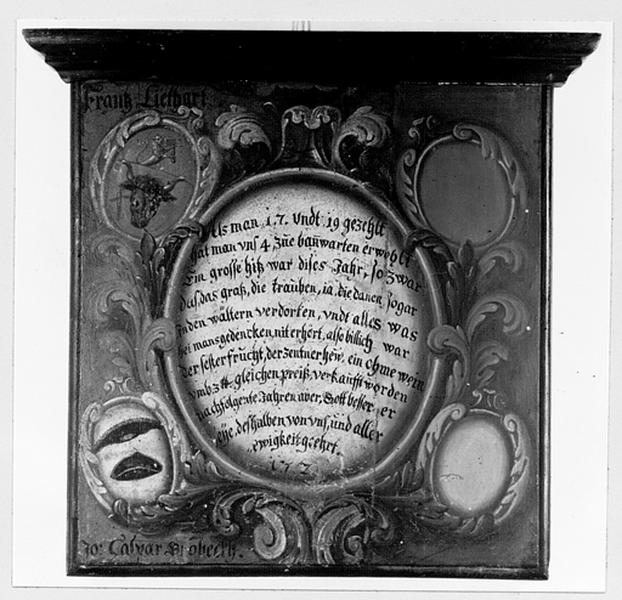 Frantz Liethart
Als man 17. vndt 19 gezehlt
hat man vnß 4, zue banwarten erwehlt
Ein grosse hitz war dises Jahr, so zwar
daß, das graß, die trauben, ia, die danen sogar
in den wältern verdorten, vndt alles was
bei mans gedencken nit erhört, also billich war
der sester frucht, der zentner hew, ein ohme wein
vmb 3 ℔. gleichen preiß, verkaufft worden
nachfolgente Jahren aver, Gott besser, er
seye, deshalben von vnß, und aller
ewigkeit geehrt.
172
Jo: Caspar